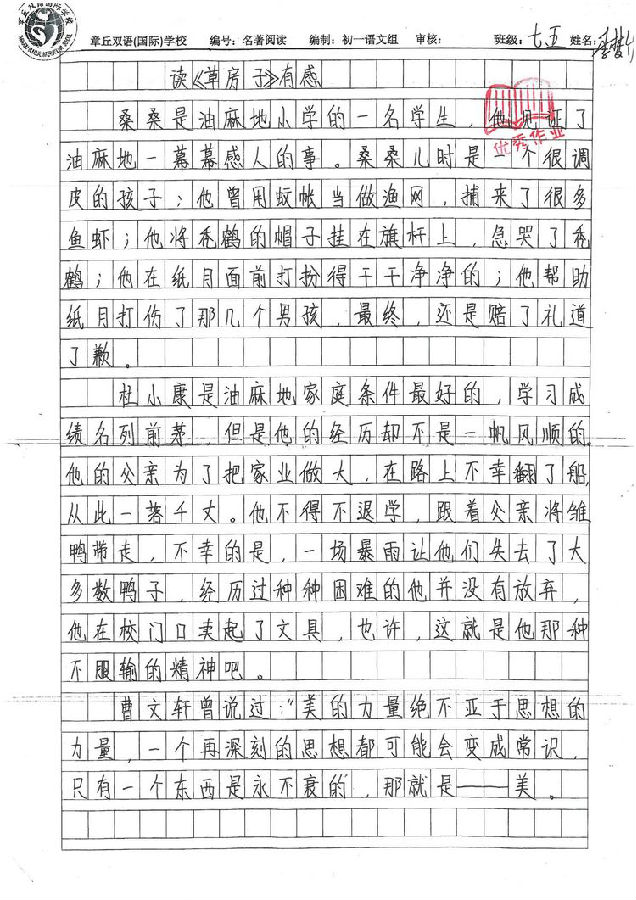 章丘双语(国际)学校 编号：名著阅读 编制：初一语文组 审核： 班级：七五 姓名：
读《草房子》有感
桑桑是油麻地小学的一名学生，他见证了
油麻地一幕幕感人的事。桑桑儿时是一个很调
皮的孩子；他曾用蚊帐当做渔网，捕来了很多
鱼虾；他将秃鹤的帽子挂在旗杆上，急哭了秃
鹤；他在纸月面前打扮得干干净净的；他帮助
纸月打伤了那几个男孩，最终，还是赔了礼道
了歉。
优秀作业
杜小康是油麻地家庭条件最好的，学习成
绩名列前茅 但是他的经历却不是一帆风顺的.
他的父亲为了把家业做大，在路上不幸翻了船,
从此一落千丈。他不得不退学，跟着父亲将雏
鸭带走，不幸的是，一场暴雨让他们失去了大
多数鸭子，经历过种种困难的他并没有放弃，
他在校门口卖起了文具，也许，这就是他那种
不服输的精神吧。
曹文轩曾说过“美的力量绝不亚于思想的
力量，一个再深刻的思想都可能会变成常识，
只有一个东西是永不衰的”，那就是——美。